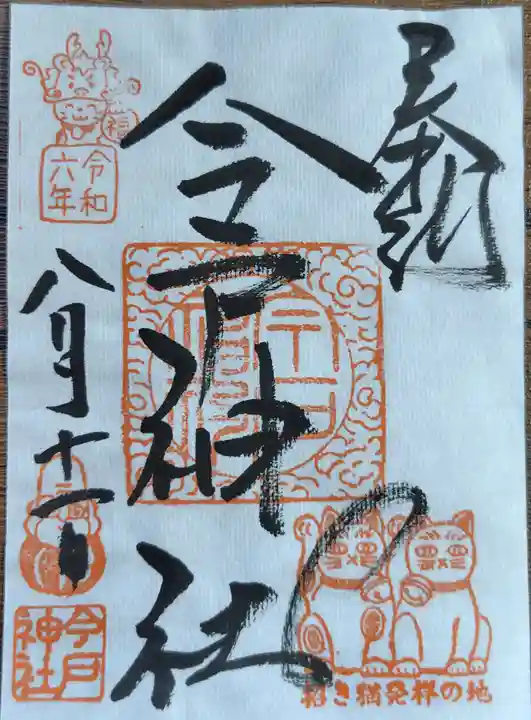 奉拝
今戸神社
福
令和
六年
八月十一日
今戸
神社
招き猫発祥の地